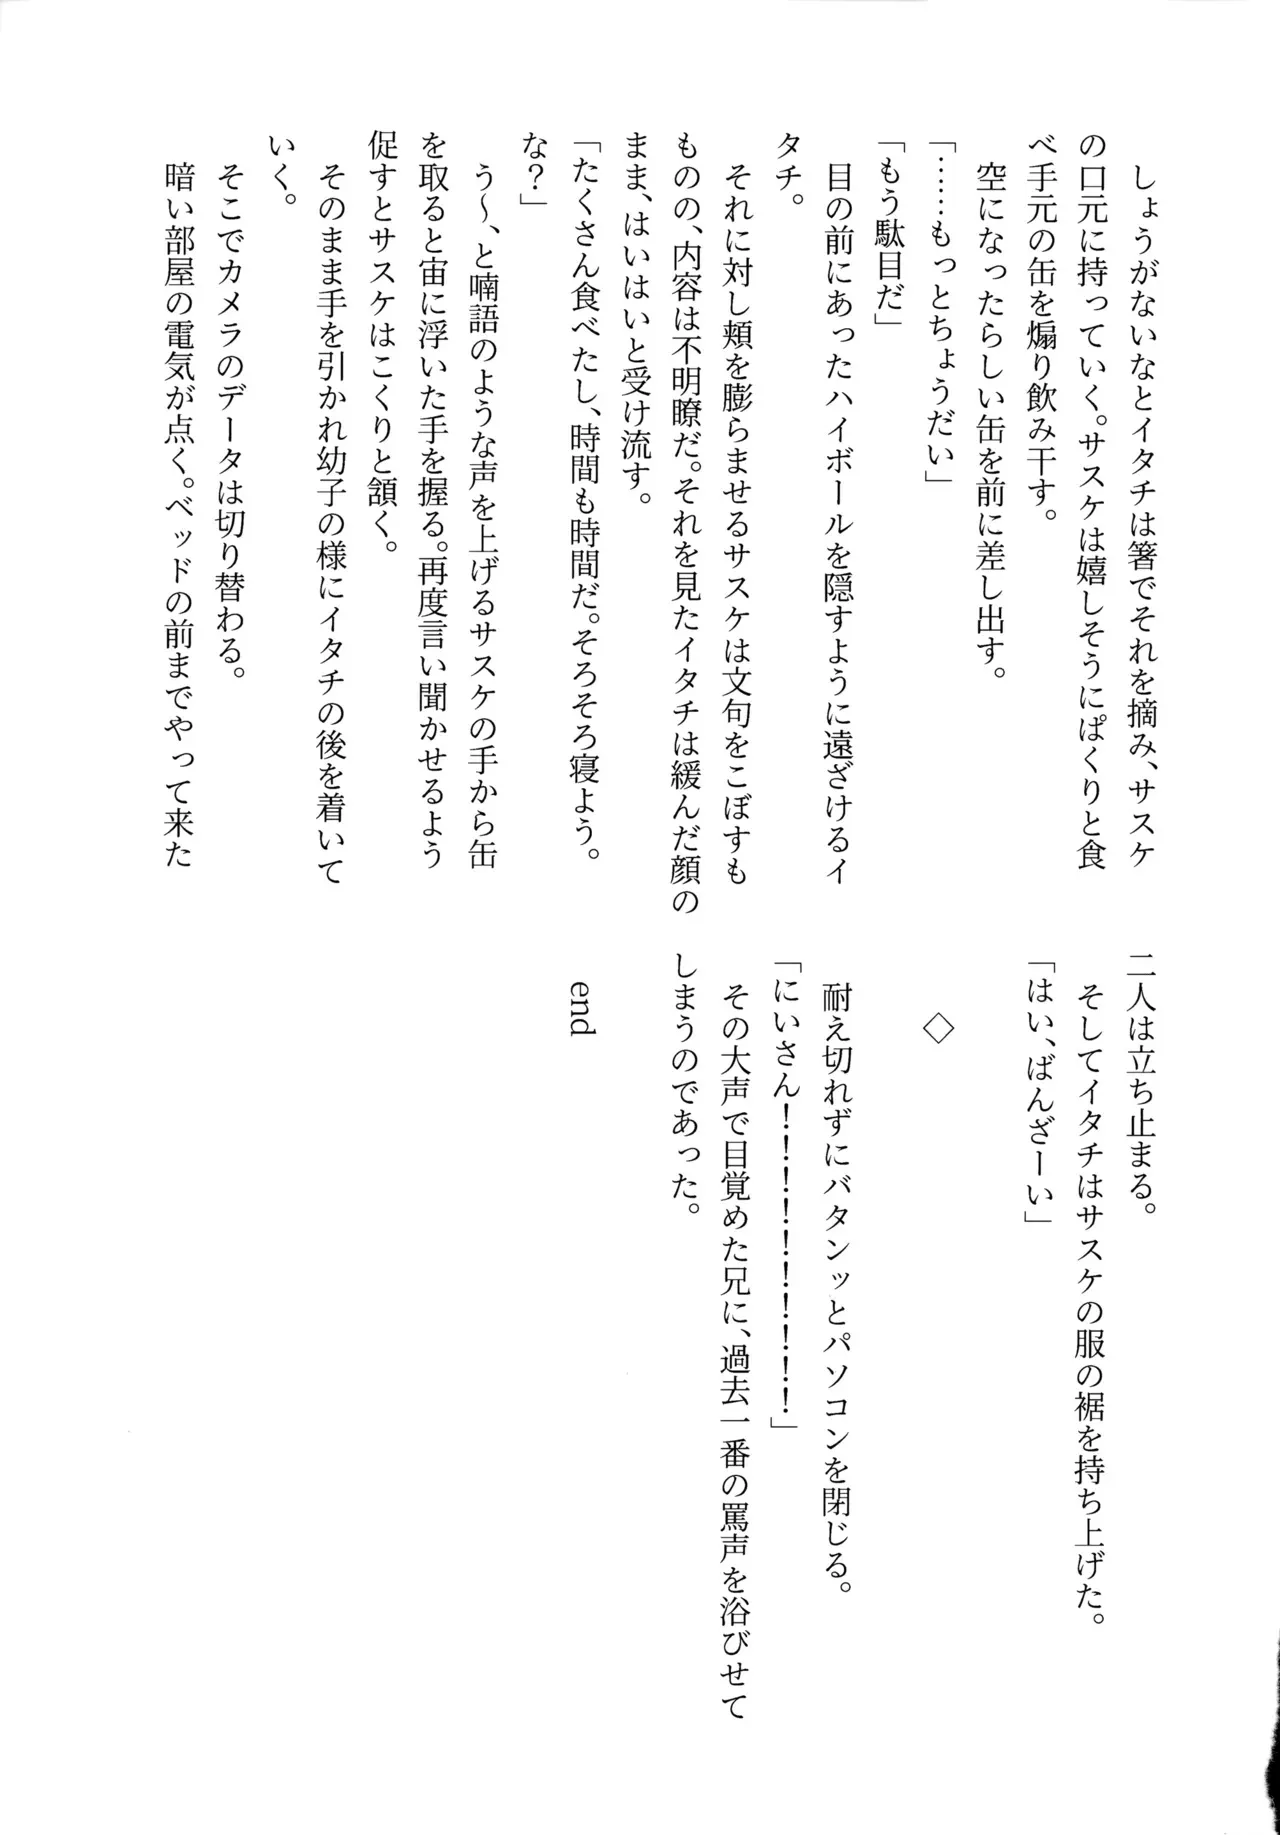 しょうがないなとイタチは箸でそれを摘み、サスケ
の口元に持っていく。サスケは嬉しそうにぱくりと食
べ手元の缶を煽り飲み干す。
空になったらしい缶を前に差し出す。
「……もっとちょうだい」
「もう駄目だ」
目の前にあったハイボールを隠すように遠ざけるイ
タチ。
それに対し頬を膨らませるサスケは文句をこぼすも
ものの、内容は不明瞭だ。それを見たイタチは緩んだ顔の
まま、はいはいと受け流す。
「たくさん食べたし、時間も時間だ。そろそろ寝よう。
な？」
う〜、と喃語のような声を上げるサスケの手から缶
を取ると宙に浮いた手を握る。再度言い聞かせるよう
促すとサスケはこくりと頷く。
そのまま手を引かれ幼子の様にイタチの後を着いて
いく。
そこでカメラのデータは切り替わる。
暗い部屋の電気が点く。ベッドの前までやって来た
二人は立ち止まる。
そしてイタチはサスケの服の裾を持ち上げた。
「はい、ばんざーい」
◇
耐え切れずにバタンッとパソコンを閉じる。
「にいさん！！！！！！！！！！」
その大声で目覚めた兄に、過去一番の罵声を浴びせて
しまうのであった。
end